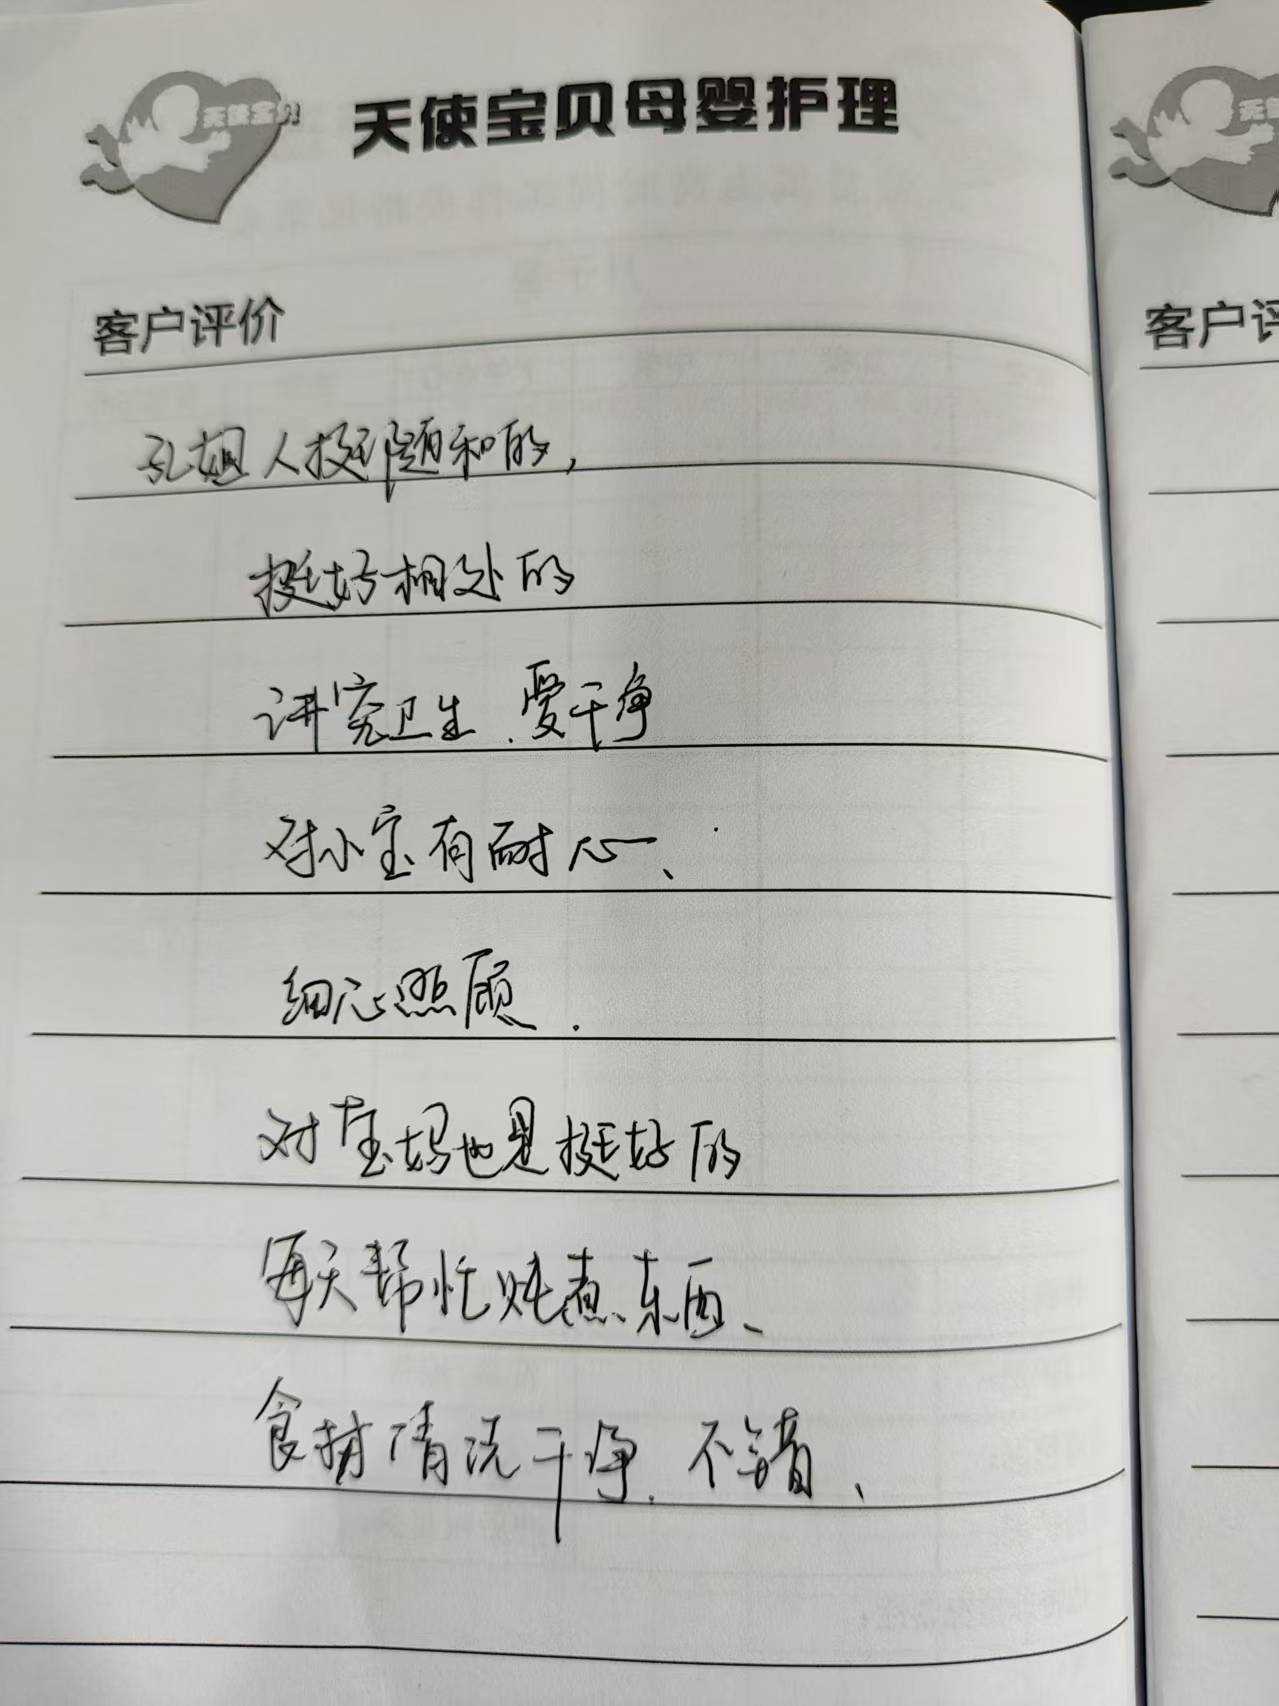 天使宝贝
天使宝贝母婴护理
客户评价
孔姐人挺随和的，
挺好相处的
讲究卫生、爱干净
对小宝有耐心、
细心照顾.
对宝妈也是挺好的
每天帮忙炖煮东西、
食材清洗干净、不错、
天使
客户评